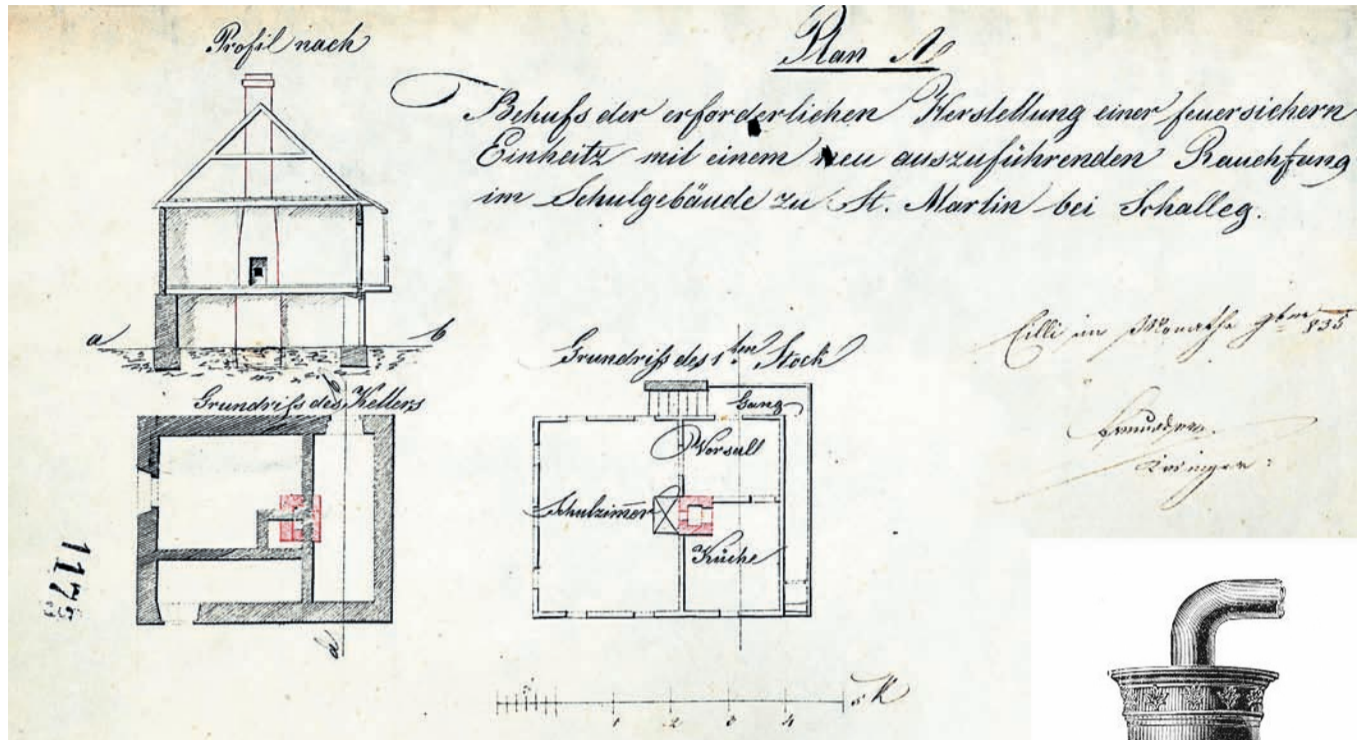 Profil nach
Plan N
Behufs der erforderlichen Herstellung einer feuersichern
Einheitz mit einem neu auszuführenden Rauchfang
im Schulgebäude zu St. Martin bei Schalleg.
a b
Cilli im Monathe 9ber 835
Grundriß des 1ten Stock
Grundriß des Kellers
b
Gang
Vorsall
Schulzim̄er
Küche
a
1173
1 2 3 4 5 K